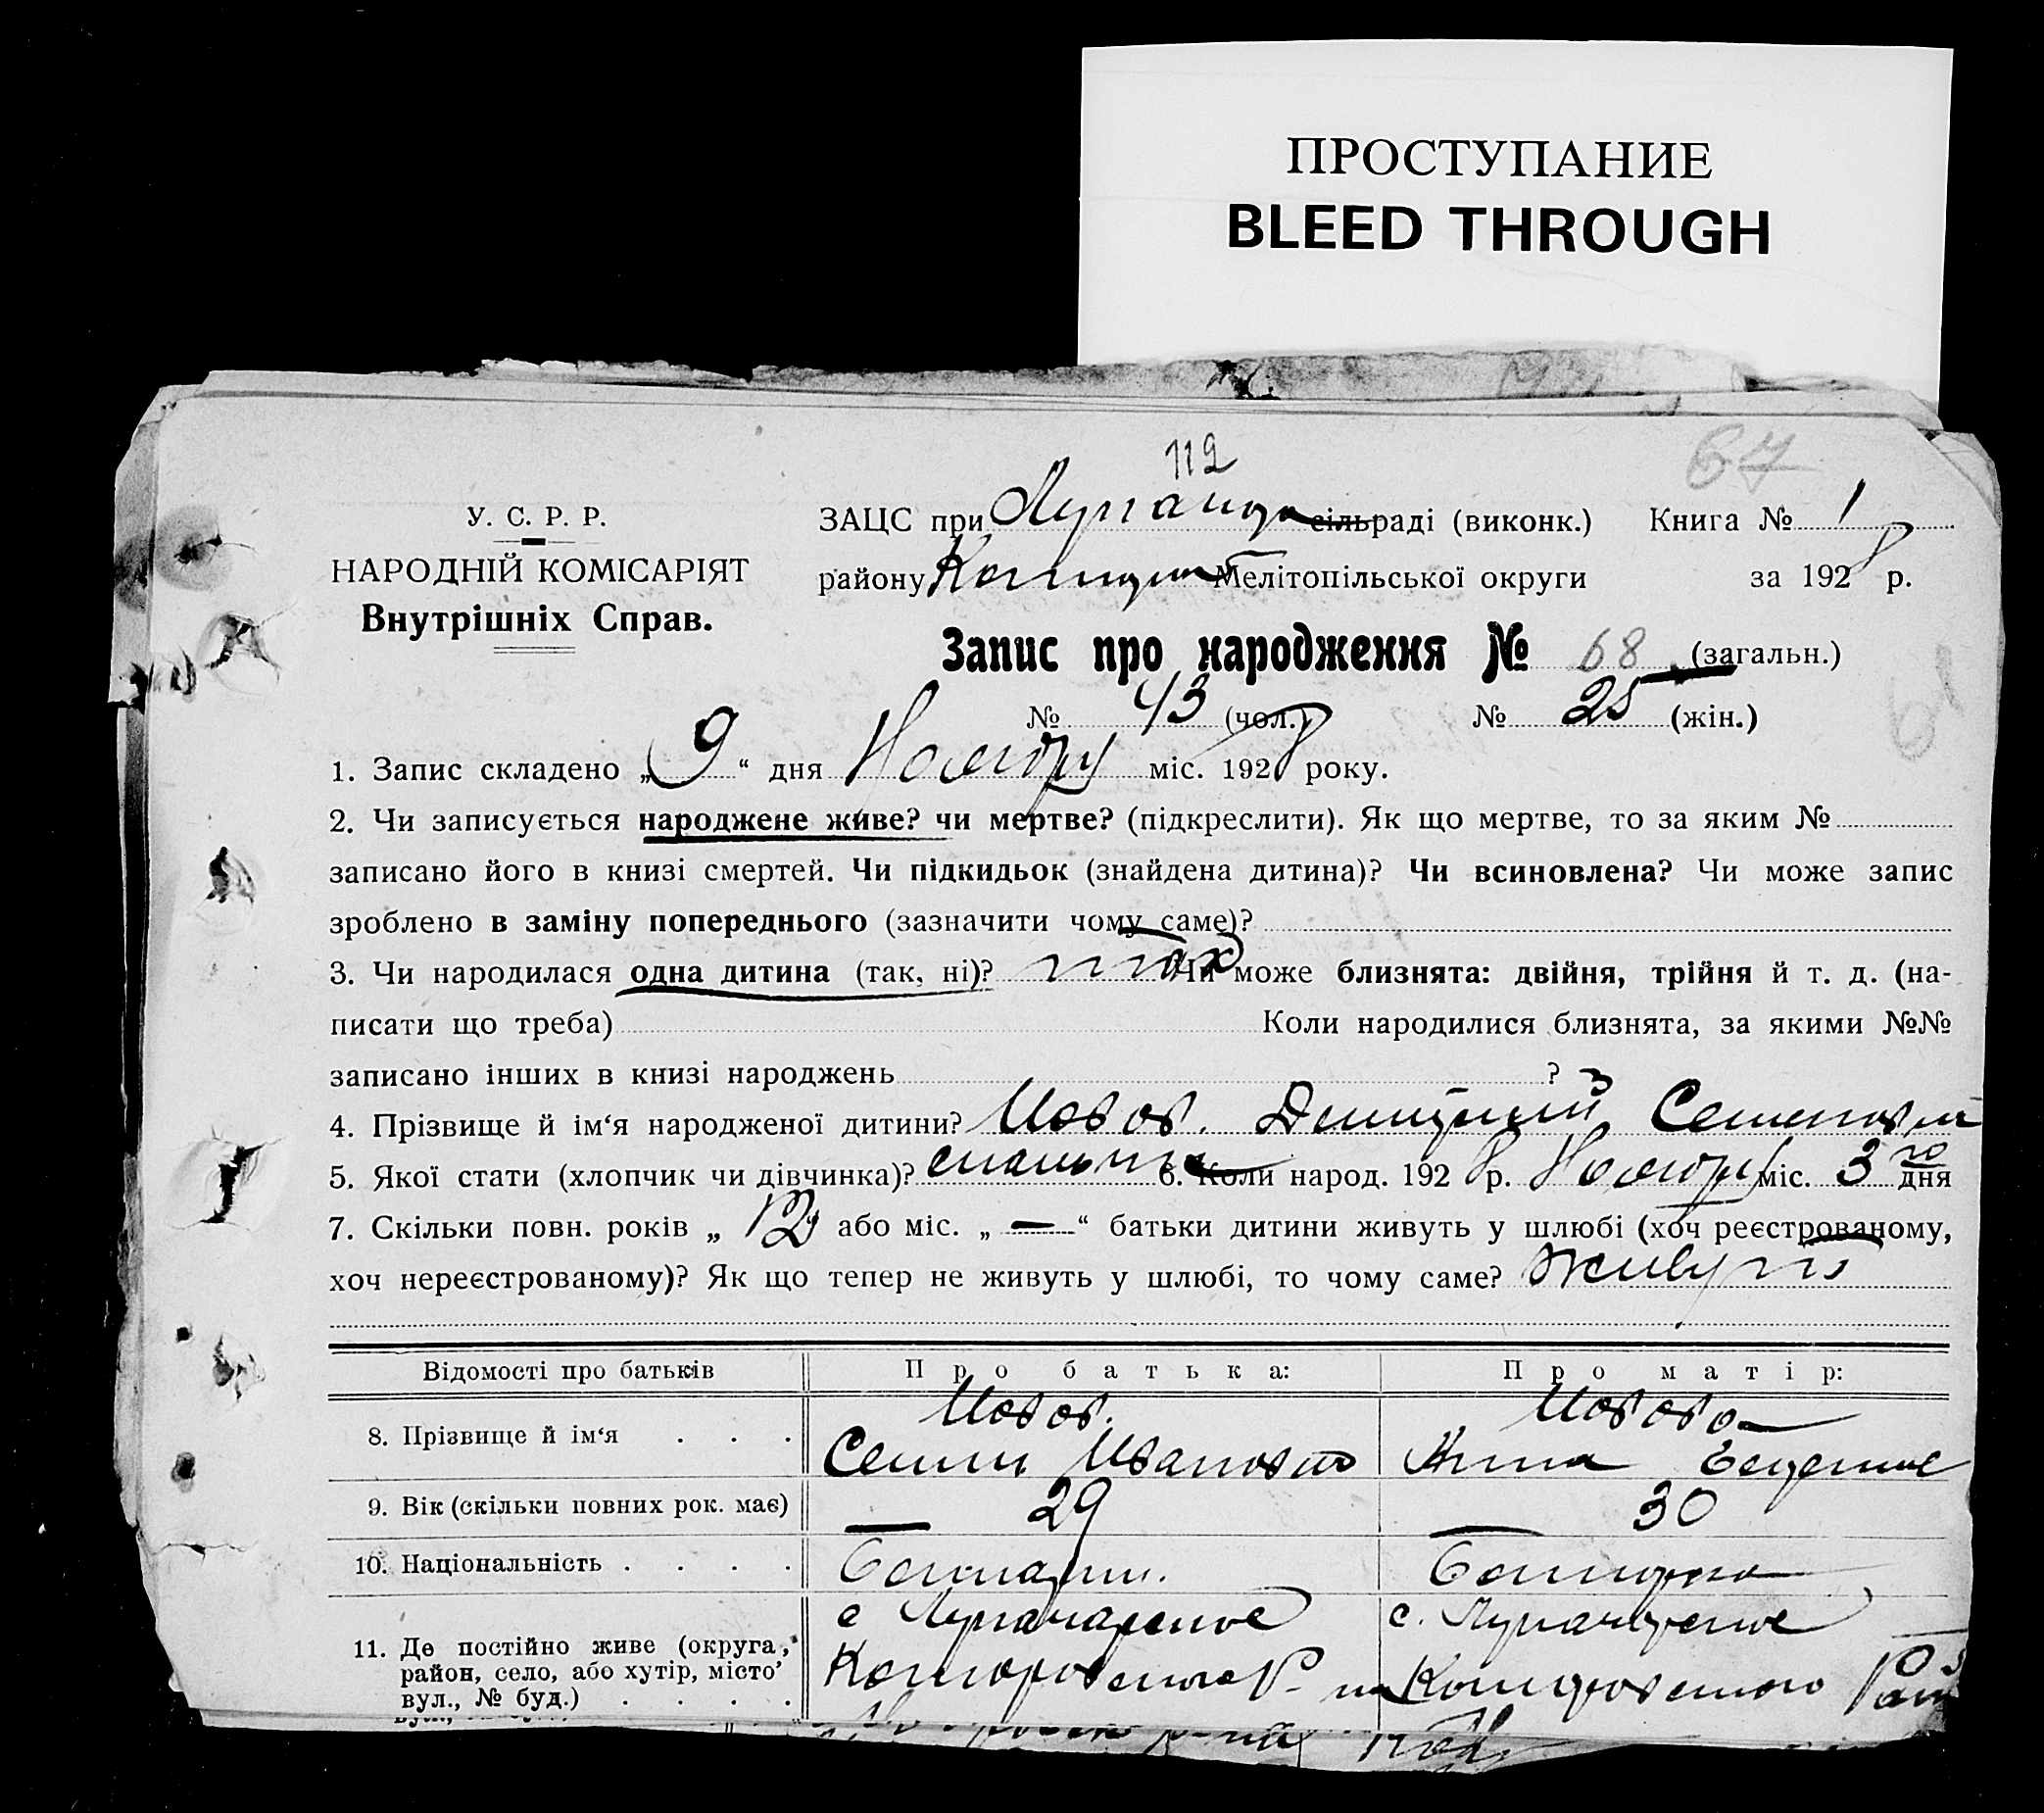 ПРОСТУПАНИЕ
BLEED THROUGH
112
67
У. С. Р. Р.
НАРОДНІЙ КОМІСАРІЯТ
Внутрішніх Справ.
ЗАЦС при сільраді (виконк.) Книга № 1
району Мелітопільської округи за 1928 р.
Запис про народження № 68 (загальн.)
№ 43 (чол.) № 25 (жін.)
1. Запис складено „ 9 “ дня Ноября міс. 1928 року.
2. Чи записується народжене живе? чи мертве? (підкреслити). Як що мертве, то за яким №
записано його в книзі смертей. Чи підкидьок (знайдена дитина)? Чи всиновлена? Чи може запис
зроблено в заміну попереднього (зазначити чому саме)?
3. Чи народилася одна дитина (так, ні)? так Чи може близнята: двійня, трійня й т. д. (на-
писати що треба) Коли народилися близнята, за якими №№
записано інших в книзі народжень ?
4. Прізвище й ім‘я народженої дитини? Дмитрий Семенов
5. Якої стати (хлопчик чи дівчинка)? 6. Коли народ. 1928 р. Ноября міс. 3го дня
7. Скільки повн. років „ 12 або міс. „ — “ батьки дитини живуть у шлюбі (хоч реєстрованому,
хоч нереєстрованому)? Як що тепер не живуть у шлюбі, то чому саме? живут
Відомості про батьків Про батька: Про матір:
8. Прізвище й ім‘я . . .
Семен Иванов Анна
9. Вік (скільки повних рок. має) — 29 — 30
10. Національність . . . . Болгарин. Болгарка
11. Де постійно живе (округа, район, село, або хутір, місто, вул., № буд.) . . . .